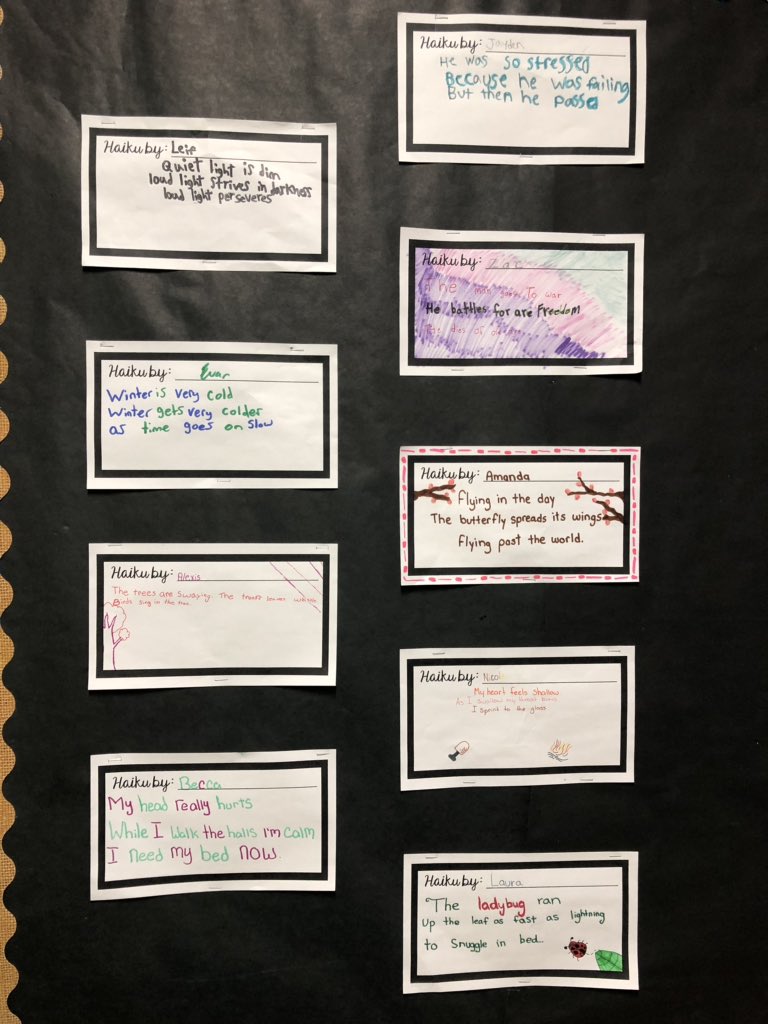 Haiku by: Leif
Quiet light is dim
loud light strives in darkness
loud light perseveres
Haiku by: Evan
Winter is very cold
Winter gets very colder
as time goes on slow
Haiku by: Alexis
The trees are swaying. The trees leaves whistle
Birds sing in the tree.
Haiku by: Becca
My head really hurts
While I walk the halls I'm calm
I need my bed now.
Haiku by: Jayden
He was so stressed
Because he was failing
But then he passed
Haiku by: Zac
The man goes To war
He battles for are Freedom
He dies of old
Haiku by: Amanda
Flying in the day
The butterfly spreads its wings
Flying past the world.
Haiku by: Nicol
My heart feels shallow
As I swallow my throat burns
I sprint to the glass
Haiku by: Laura
The ladybug ran
Up the leaf as fast as lightning
to snuggle in bed...